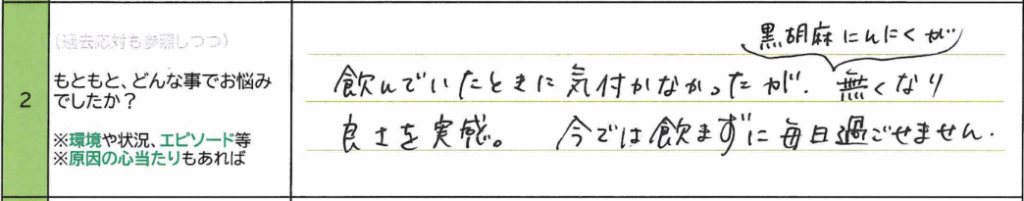 2
(過去応対も参照しつつ)
もともと、どんな事でお悩み
でしたか？
※環境や状況、エピソード等
※原因の心当たりもあれば
黒胡麻にんにくが
飲んでいたときに気付かなかったが、無くなり
良さを実感。 今では飲まずに毎日過ごせません.